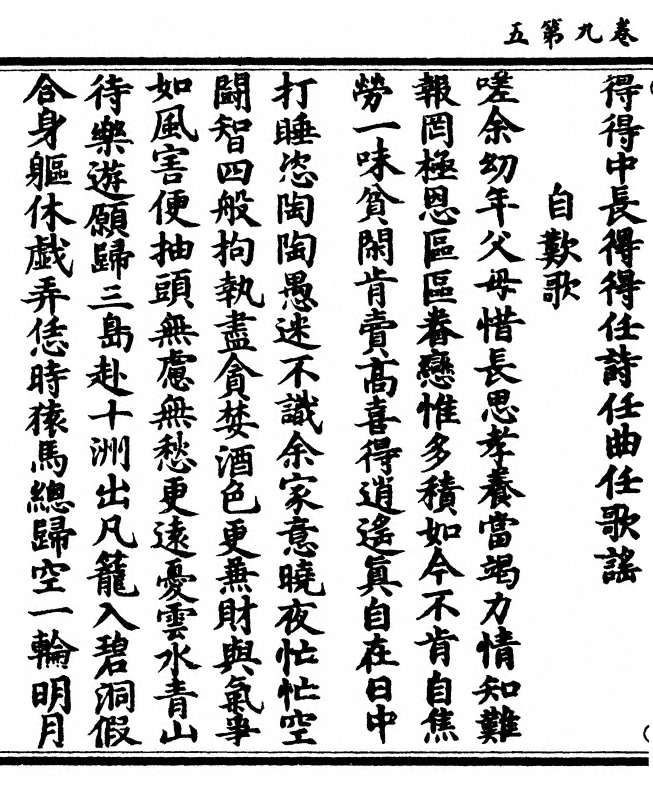 卷九第五
得得中長得得任詩任曲任歌謠
自歎歌
嗟余幼年父母惜長思孝養當竭力情知難
報罔極恩區區眷戀惟多積如今不肯自焦
勞一味貧閑肯賣高喜得逍遙眞自在日中
打睡恣陶陶愚迷不識余家意曉夜忙忙空
鬭智四般拘執盡貪婪酒色更兼財與氣爭
如風害便抽頭無慮無愁更遠憂雲水青山
待樂遊願歸三島赴十洲出凡籠入碧洞假
合身軀休戲弄恁時猿馬總歸空一輪明月